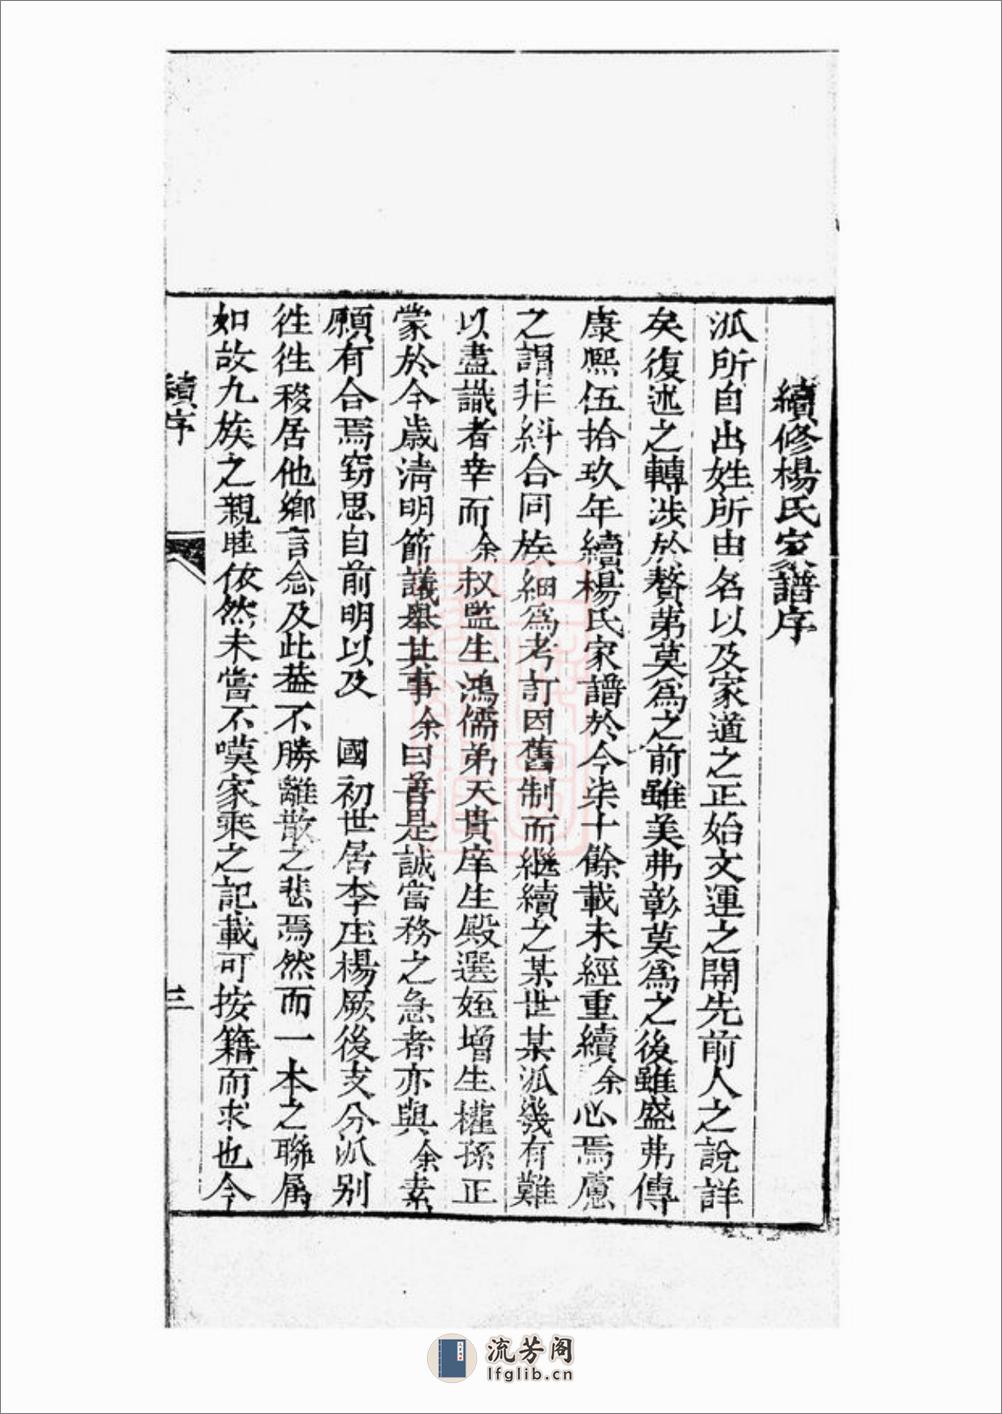 續修楊氏家譜序
派所自出姓所由名以及家道之正始文運之開先前人之說詳
矣復述之轉涉於贅第莫為之前雖美弗彰莫為之後雖盛弗傳
康熙伍拾玖年續楊氏家譜於今柒十餘載未經重續余心焉慮
之謂非糾合同族細為考訂因舊制而継續之某世某派幾有難
以盡識者幸而余叔監生鴻儒弟天貴庠生殿選姪增生權孫正
蒙於今歲清明節議舉其事余曰善是誠當務之急者亦與余素
願有合焉窃思自前明以及 國初世居李庄楊厥後支分派別
徃徃移居他鄉言念及此葢不勝離散之悲焉然而一本之聯属
如故九族之親睦依然未嘗不嘆家乘之記載可按籍而求也今
續序
三
流芳阁
lfglib.cn